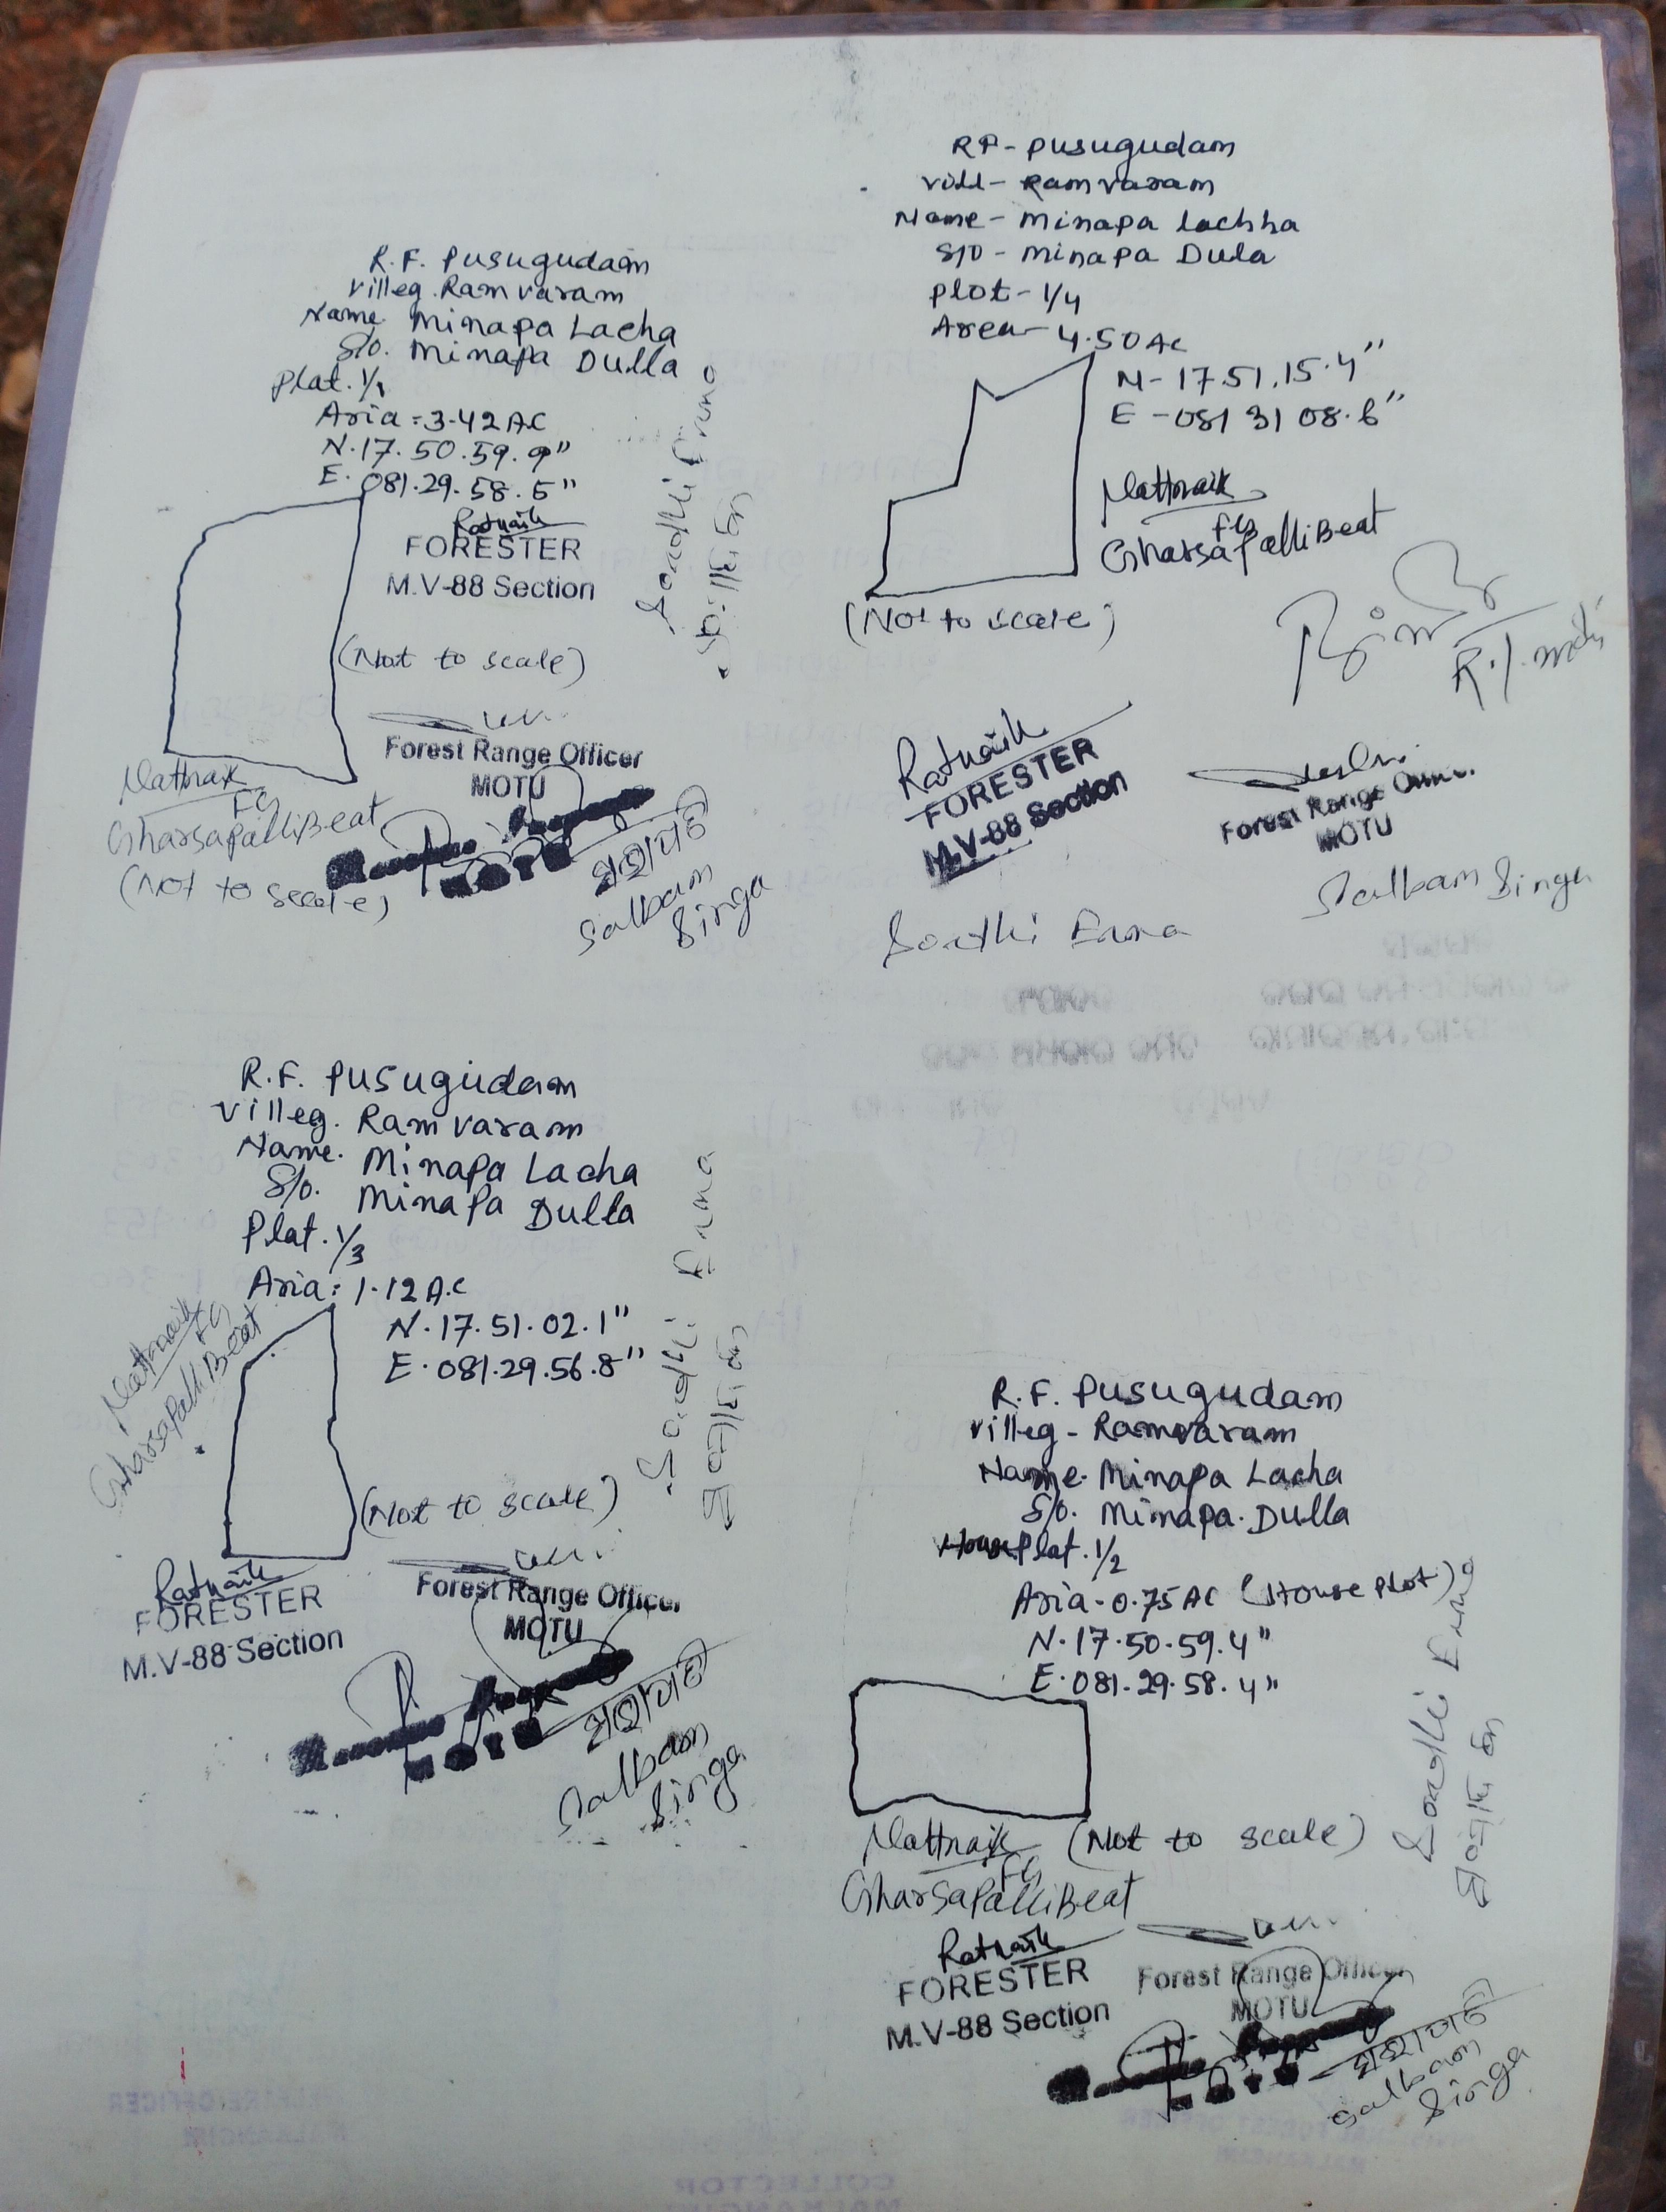 R.F. Pusugudam
Villeg. Ramvaram
Name. Minapa Lacha
S/o. Minapa Dulla
Plat. 1/1
Aria = 3.42 AC
N. 17. 50. 59. 9"
E. 081. 29. 58. 5"
Ratnaik
FORESTER
M.V-88 Section
(Not to scale)
Forest Range Officer
MOTU
GharsapalliBeat
(Not to scale)
Salbam
Singa
RF- Pusugudam
Vill- Ramvaram
Name- Minapa Lachha
S/O - Minapa Dula
Plot- 1/4
Area- 4.50 AC
N- 17.51.15.4"
E -081 31 08.6"
GharsapalliBeat
(Not to scale)
Ratnaik
FORESTER
M.V-88 Section
Forest Range
MOTU
Salbam Singa
R.F. Pusugudam
Villeg. Ramvaram
Name. Minapa Lacha
S/o. Minapa Dulla
Plat. 1/3
Aria: 1.12 A.C
N. 17. 51. 02. 1"
E. 081. 29. 56. 8"
GharsapalliBeat
(Not to scale)
Ratnaik
FORESTER
M.V-88 Section
Forest Range Officer
MOTU
Salbam
Singa
R.F. Pusugudam
Villeg - Ramvaram
Name. Minapa Lacha
S/o. Minapa. Dulla
Plat. 1/2
Aria- 0.75 AC (House Plot)
N. 17. 50. 59. 4"
E. 081. 29. 58. 4"
(Not to scale)
GharsapalliBeat
Ratnaik
FORESTER
M.V-88 Section
Forest Range Officer
MOTU
Salbam
Singa